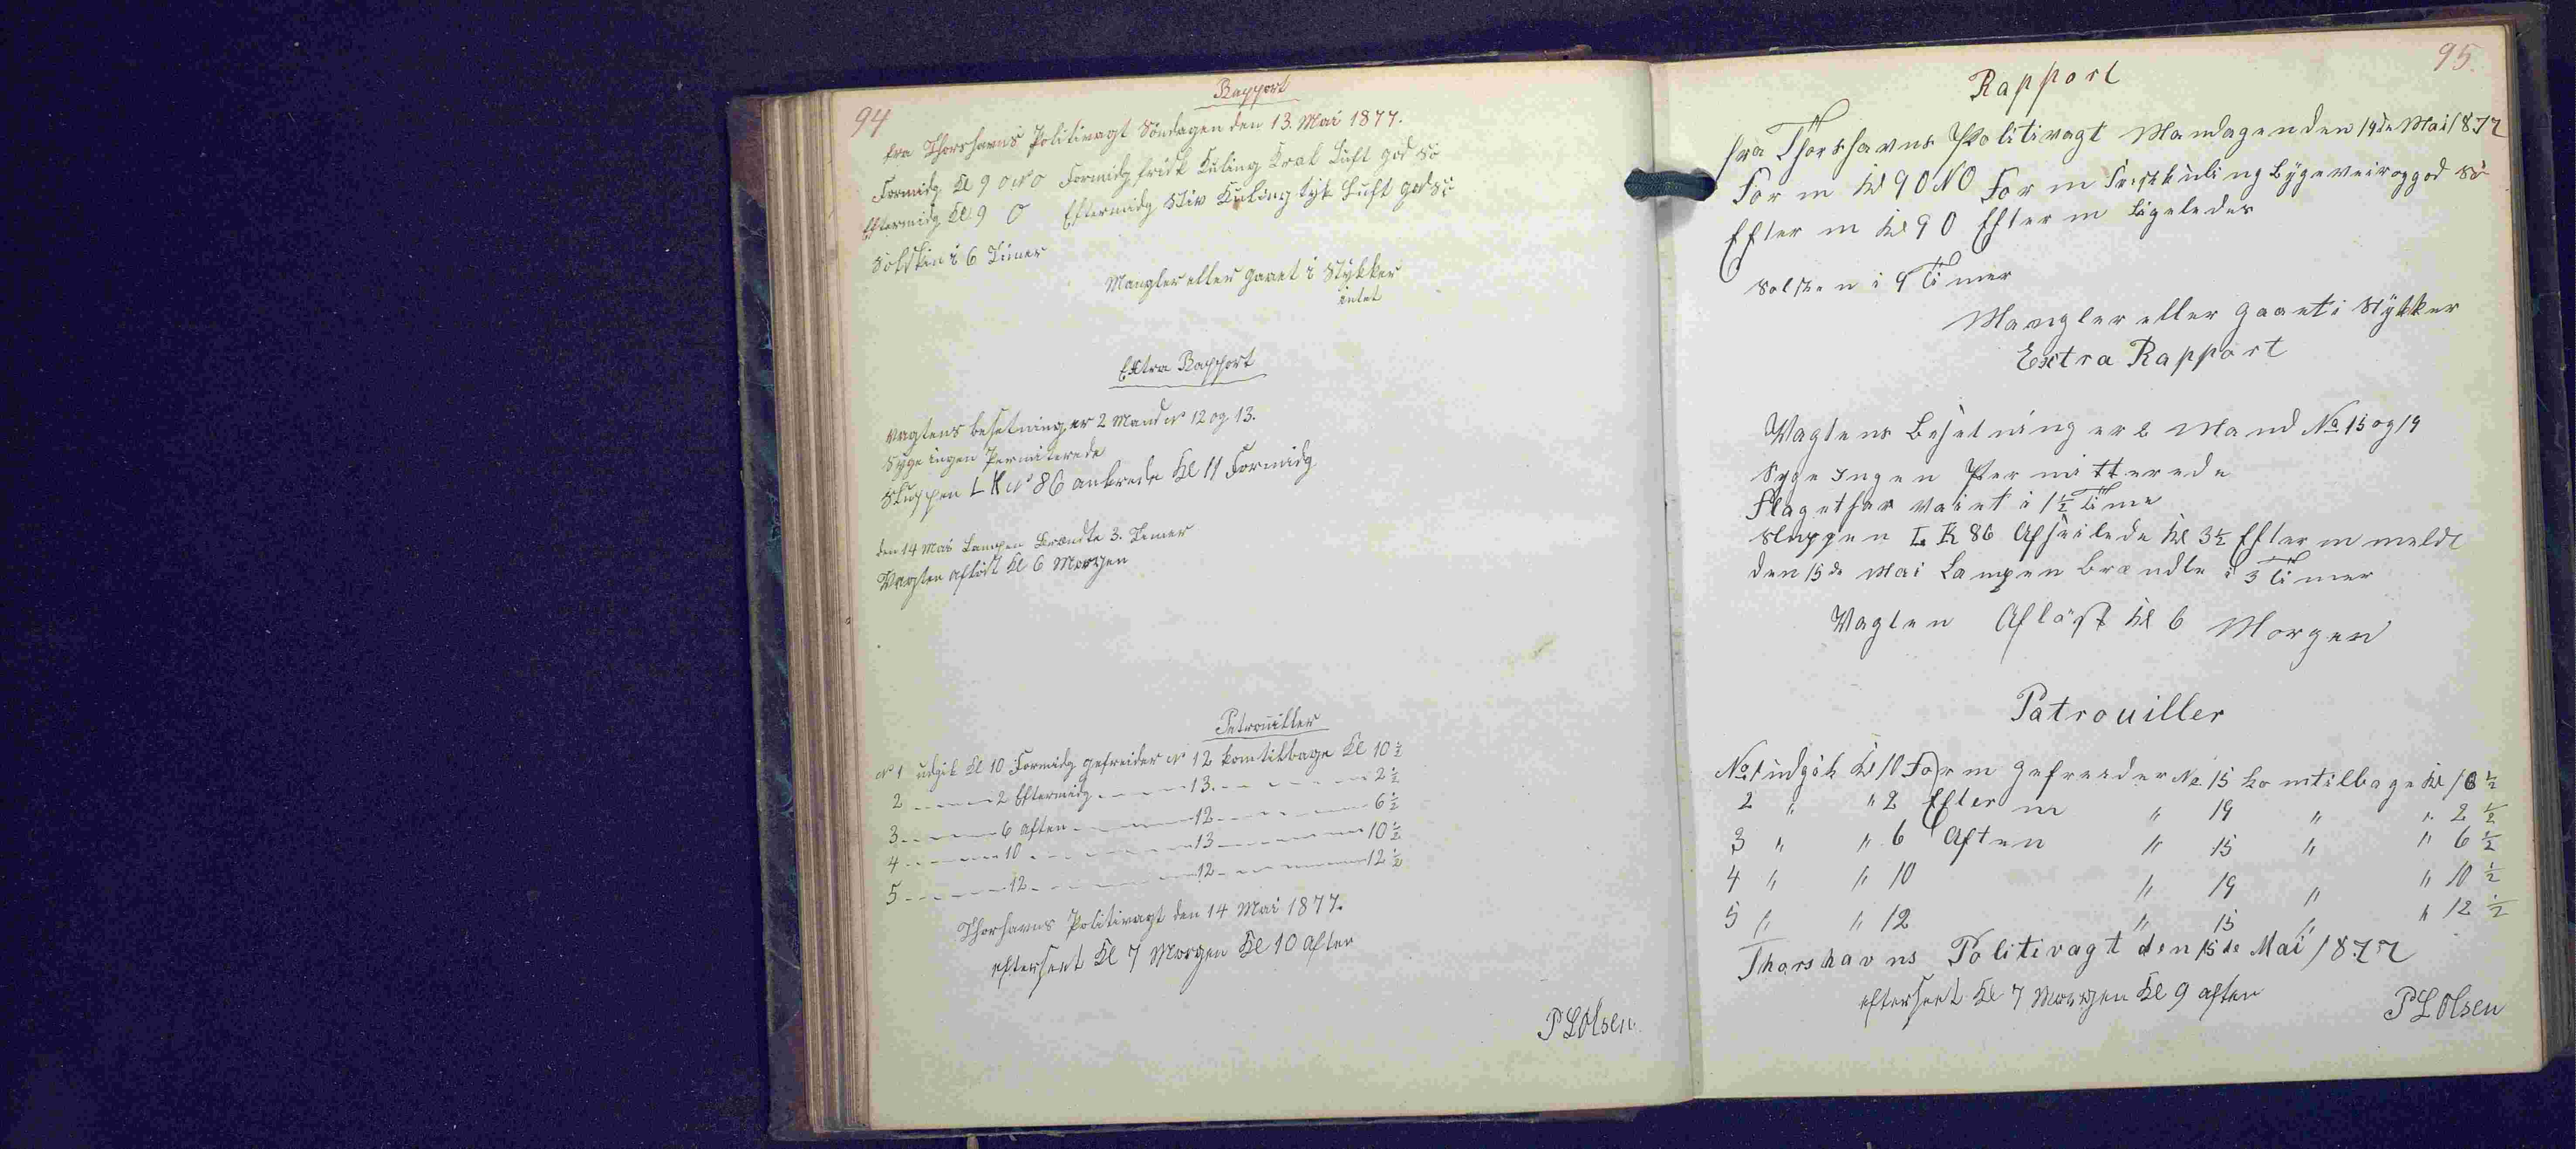 94
Rapport
fra Thorshavns Politivagt Söndagen den 13. Mai 1877.
Formidg Kl 9 O N O Formidg frisk Kuling Krak Luft god Sö
Eftermidg Kl 9 O Eftermidg Stiv Kuling tyk Luft god Sö
Solskin i 6 Timer
Mangler eller gaaet i Stykker
intet
Extra Rapport
Vagtens besetning er 2 Mand N 12 og 13.
Syge ingen Permiterede
Sluppen L K N 86 ankrede Kl 11 Formidg
den 14 Mai Lampen Brændte 3. Timer
Vagten aflöst Kl 6 Morgen
Patrouiller
N 1 udgik Kl 10 Formidg gefreider N 12 kom tilbage Kl 10 ½
2 - - - 2 Eftermidg - - - 13 - - - 2 ½
3 - - - 6 Aften - - - 12 - - - 6 ½
4 - - - 10 - - - 13 - - - 10 ½
5 - - - 12 - - - 12 - - - 12 ½
Thorhavns Politivagt den 14 Mai 1877.
efterseet Kl 7 Morgen Kl 10 aften
P L Olsen
95.
Rapport
fra Thorshavns Politivagt Mandagen den 14de Mai 1877
For m Kl 9 O N O For m Friskkuling Bygeveir og god Sö
Efter m Kl 9 O Efter m Ligeledes
Solsken i 4 Timer
Mangler eller gaaet i Stykker
Extra Rapport
Vagtens Besetning er 2 Mand No 15 og 19
Syge Ingen Permitterede
Flaget har vaiet i 1½ Time
Sluppen L K 86 Afseilede Kl 3½ Efter m meldt
den 15de Mai Lampen Brændte i 3 Timer
Vagten Aflöst Kl 6 Morgen
Patrouiller
No 1 udgik Kl 10 Form gefreider No 15 kom tilbage Kl 10 ½
2 " " 2 Efter m " 19 " " 2 ½
3 " " 6 Aften " 15 " " 6 ½
4 " " 10 " 19 " " 10 ½
5 " " 12 " 15 " " 12 ½
Thorshavns Politivagt den 15de Mai 1877
efterseet Kl 7 Morgen Kl 9 aften
P L Olsen